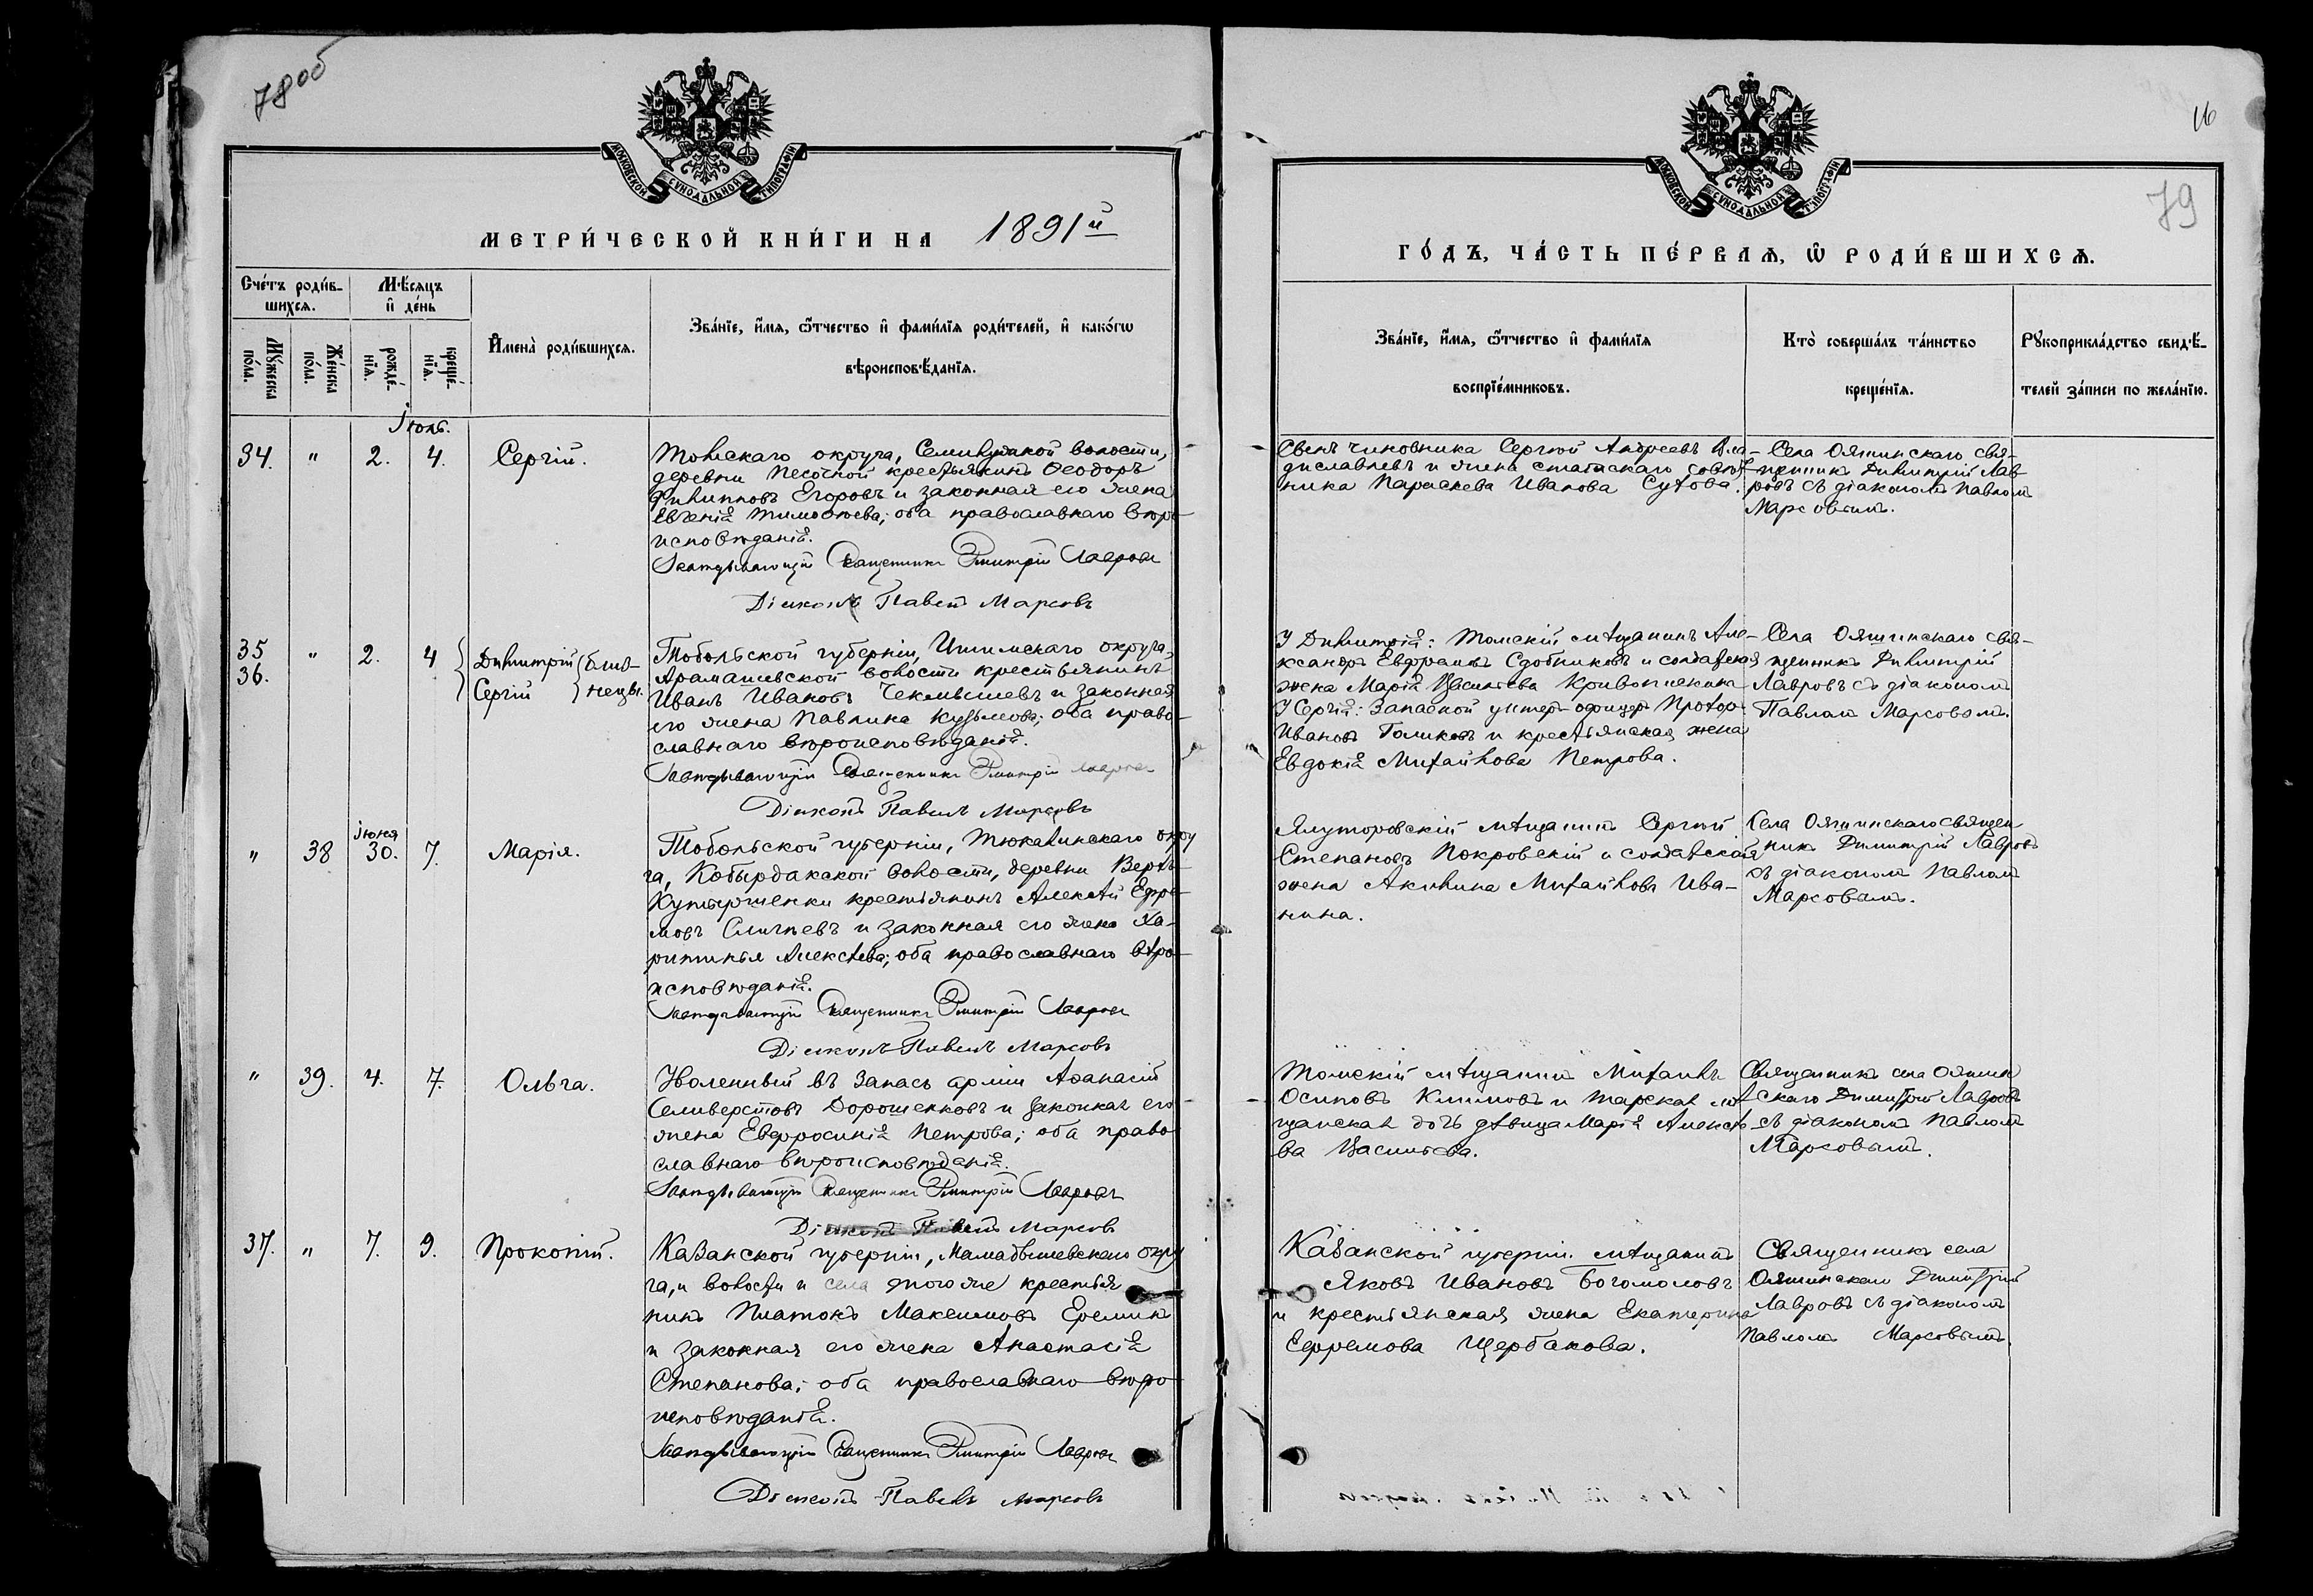 78об
МОСКОВСКОЙ СѴНОДАЛЬНОЙ ТИПОГРАФІИ
МЕТРИ́ЧЕСКОЙ КНИ́ГИ НА 1891й
Сче́тъ роди́в-
шихся.
Мѣ́сяцъ
и҆ де́нь
Му́жеска
по́ла.
Же́нска
по́ла.
рожде́-
нїя.
креще́-
нїя.
И҆мена̀ роди́вшихся.
Зва́нїе, и҆́мя, ѻ҆́тчество и҆ фами́лїя роди́телей, и҆ како́гѡ
вѣроисповѣ́данїя.
Іюль.
34. " 2. 4. Сергій.
Томскаго округа, Семилужной волости,
деревни Песочной крестьянинъ Ѳеодоръ
Филипповъ Егоровъ и законная его жена
Евгенія Тимоѳеева; оба православнаго вѣро-
исповѣданія.
Завѣдывающій Священникъ Димитрій Лавровъ
Діаконъ Павелъ Марсовъ
35
36.
" 2. 4 Димитрій близ-
Сергій нецы.
Тобольской губерніи, Ишимскаго округа,
Арамашевской волости крестьянинъ
Иванъ Ивановъ Чекмышевъ и законная
его жена Павлина Кузьмова; оба право-
славнаго вѣроисповѣданія.
Завѣдывающій Священникъ Димитрій Лавровъ
Діаконъ Павелъ Марсовъ
" 38 Іюня 30. 7. Марія.
Тобольской губерніи, Тюкалинскаго окру
га, Кабырдакской волости, деревни Верхъ-
Алексѣй Ефре-
мовъ и законная его жена Ха-
ритинья Алексѣева; оба православнаго вѣро-
исповѣданія.
Завѣдывающій Священникъ Димитрій Лавровъ
Діаконъ Павелъ Марсовъ
" 39. 4. 7. Ольга.
Уволенный въ запасъ арміи Аѳанасій
Селиверстовъ Дорошенковъ и законная его
жена Евфросинія Петрова; оба право-
славнаго вѣроисповѣданія.
Завѣдывающій Священникъ Димитрій Лавровъ
Діаконъ Павелъ Марсовъ
37. " 7. 9. Прокопій.
Казанской губерніи, Мамадышевскаго окру
га, и волости и села того же крестья
нинъ Платонъ Максимовъ Ереминъ
и законная его жена Анастасія
Степанова; оба православнаго вѣро-
исповѣданія.
Завѣдывающій Священникъ Димитрій Лавровъ
Діаконъ Павелъ Марсовъ
16
79
МОСКОВСКОЙ СѴНОДАЛЬНОЙ ТИПОГРАФІИ
ГО́ДЪ, ЧА́СТЬ ПЕ́РВАЯ, Ѡ҆ РОДИ́ВШИХСЯ.
Зва́нїе, и҆́мя, ѻ҆́тчество и҆ фами́лїя
воспрїе́мниковъ.
Кто̀ соверша́лъ та́инство
креще́нїя.
Рꙋкоприкла́дство свидѣ́-
телей за́писи по жела́нїю.
Сынъ чиновника Сергѣй Андреевъ Вла-
диславлевъ и жена статскаго совѣт
ника Параскева Иванова Сутова.
Села Ояшинскаго свя-
щенникъ Димитрій Лав
ровъ съ діакономъ Павломъ
Марсовымъ.
У Димитрія: Томскій мѣщанинъ Але-
ксандръ Сдобниковъ и солдатская
жена Марія Васильева Кривощекина
У Сергія: Запасной унтеръ-офицеръ Прохоръ
Ивановъ Голиковъ и крестьянская жена
Евдокія Михайлова Петрова.
Села Ояшинскаго свя-
щенникъ Димитрій
Лавровъ съ діакономъ
Павломъ Марсовымъ.
Ялуторовскій мѣщанинъ Сергѣй
Степановъ Покровскій и солдатская
жена Акилина Михайлова Ива-
нина.
Села Ояшинскаго священ
никъ Димитрій Лавровъ
съ діакономъ Павломъ
Марсовымъ.
Томскій мѣщанинъ Михаилъ
Осиповъ Климовъ и Тарская мѣ
щанская дочь дѣвица Марія Алексѣе
ва Васильева.
Священникъ села Ояшин
скаго Димитрій Лавровъ
съ діакономъ Павломъ
Марсовымъ.
Казанской губерніи мѣщанинъ
Яковъ Ивановъ Богомоловъ
и крестьянская жена Екатерина
Ефремова Щербакова.
Священникъ села
Ояшинскаго Димитрій
Лавровъ съ діакономъ
Павломъ Марсовымъ.